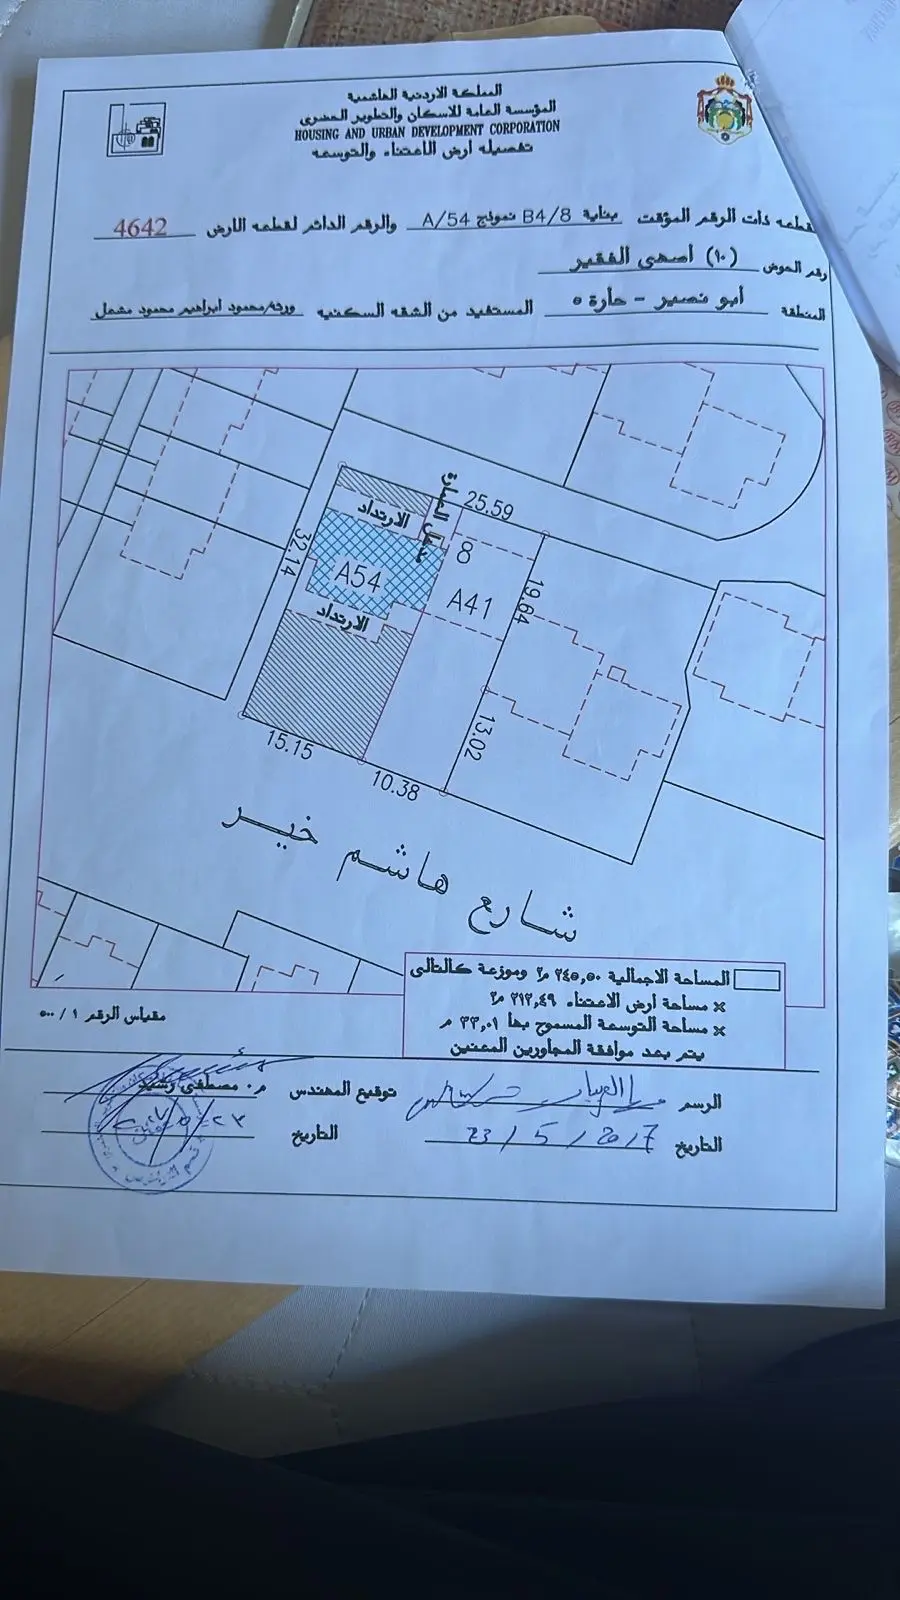 المملكة الاردنية الهاشمية
المؤسسة العامة للاسكان والتطوير الحضري
HOUSING AND URBAN DEVELOPMENT CORPORATION
تفصيله ارض الاعتناء والتوسعه
قطعه ذات الرقم المؤقت بناية B4/8 نموذج A/54 والرقم الدائم لقطعه الارض 4642
رقم الحوض (١٠) أصهى الفقير
المنطقة أبو نصير - حارة ٥ المستفيد من الشقه السكنيه ورثه/محمود ابراهيم محمود مشعل
25.59
الارتداد
32.14
8
A54
A41
19.64
الارتداد
13.02
15.15
10.38
شارع هاشم خير
المساحة الاجمالية ٢٤٥,٥٠ م٢ وموزعة كالتالى
× مساحة أرض الاعتناء ٢١٢,٤٩ م٢
× مساحة التوسعة المسموح بها ٣٣,٠١ م
يتم بعد موافقة المجاورين المعنين
مقياس الرقم ١ / ٥٠٠
الرسم
توقيع المهندس م. مصطفى رشيد
التاريخ 23 / 5 / 2017
التاريخ